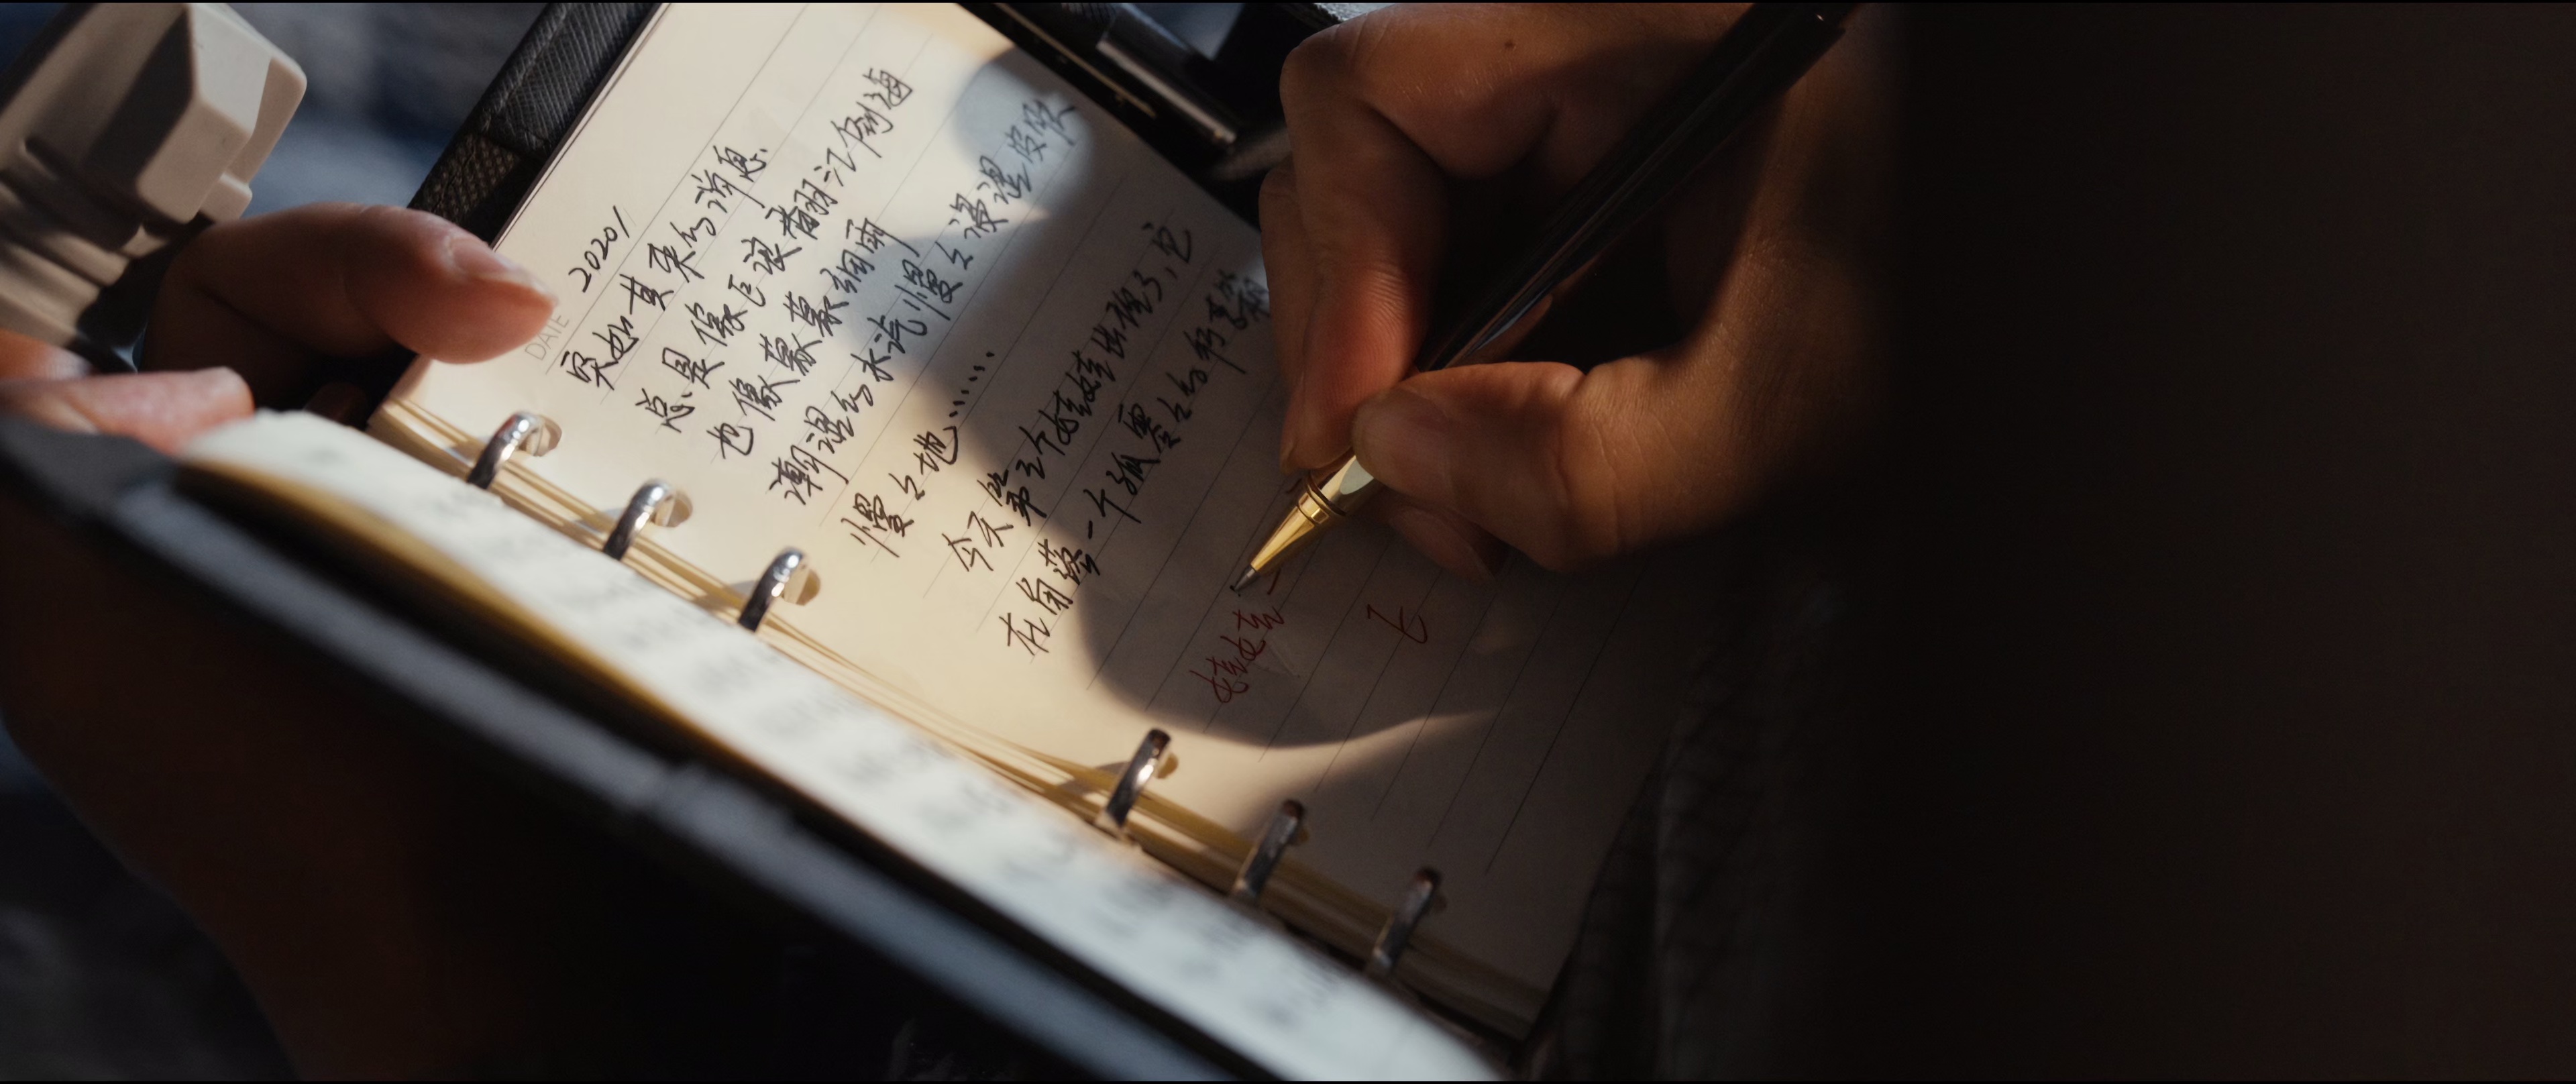 DATE
2020/
突如其来的消息
总是像巨浪翻江倒海
也像蒙蒙细雨
潮湿的水汽慢慢浸湿皮肤
慢慢地……
今天第三个娃娃出现了,它
在角落一个孤零零的行李箱
娃娃